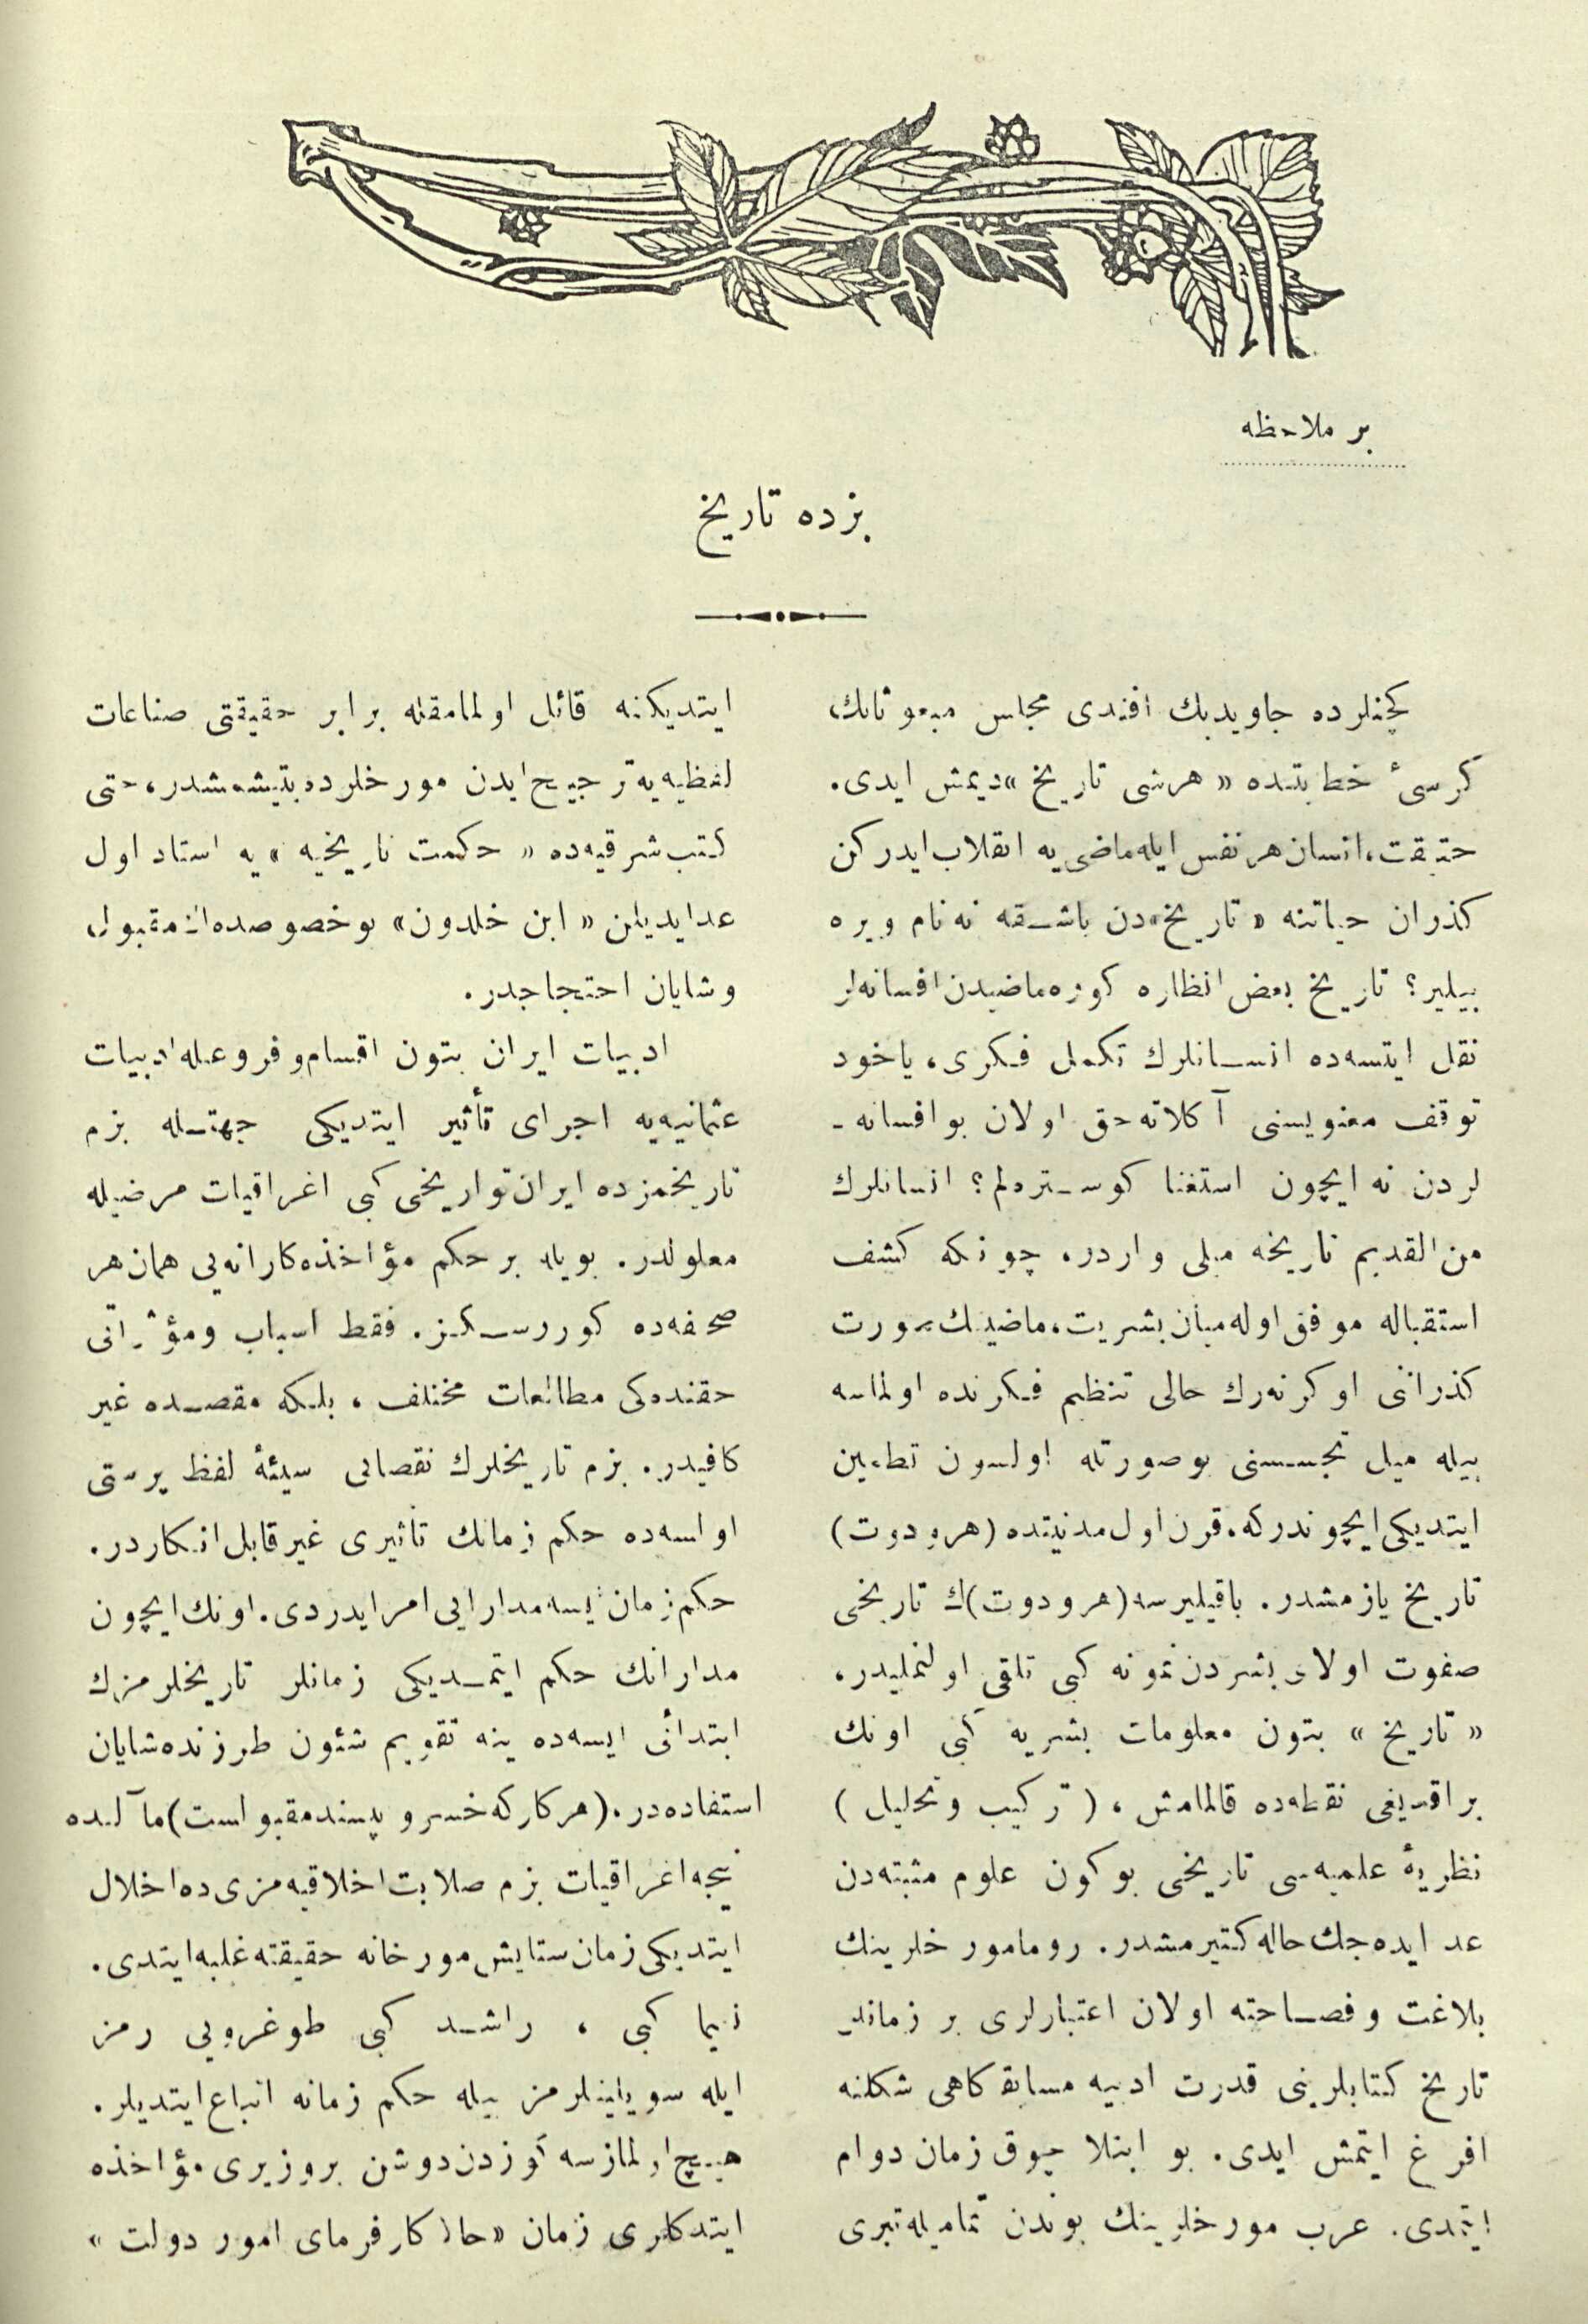 بر ملاحظه
بزده تاریخ
کچنلرده جاوید بك افندی مجلس مبعوثانك
کرسیٔ خطابتنده « هر شی تاریخ » دیمش ایدی.
حقیقت، انسان هر نفس ایله ماضی یه انقلاب ایدرکن
کذران حیاتنه « تاریخ » دن باشقه نه نام ویره
بیلیر؟ تاریخ بعض انظاره کوره ماضیدن افسانه لر
نقل ایتسه ده انسانلرك تکمل فکری، یاخود
توقف معنویسنی آکلاته حق اولان بو افسانه -
لردن نه ایچون استغنا کوستره لم؟ انسانلرك
من القدیم تاریخه میلی واردر، چونکه کشف
استقباله موفق اوله میان بشریت، ماضینك صورت
کذرانی اوکرنه رك حالی تنظیم فکرنده اولماسه
بیله میل تجسسنی بو صورتله اولسون تطمین
ایتدیکی ایچوندرکه، قرن اول مدنیتده (هرودوت)
تاریخ یازمشدر. باقیلیرسه (هرودوت)ك تاریخی
صفوت اولای بشردن نمونه کبی تلقی اولنملیدر،
« تاریخ » بتون معلومات بشریه کبی اونك
براقدیغی نقطه ده قالمامش، ( ترکیب و تحلیل )
نظریۀ علمیه سی تاریخی بوکون علوم مثبته دن
عد ایده جك حاله کتیرمشدر. روما مورخلرینك
بلاغت و فصاحته اولان اعتبارلری بر زماندر
تاریخ کتابلرینی قدرت ادبیه مسابقه کاهی شکلنه
افرغ ایتمش ایدی. بو ابتلا چوق زمان دوام
ایتمدی. عرب مورخلرینك بوندن تمامیله تبری
ایتدیکنه قائل اولمامقله برابر حقیقتی صناعات
لفظیه یه ترجیح ایدن مورخلرده یتیشمشدر، حتی
کتب شرقیه ده « حکمت تاریخیه » یه استاد اول
عد ایدیلن « ابن خلدون » بو خصوصده اك مقبول
و شایان احتجاجدر.
ادبیات ایران بتون اقسام و فروعیله ادبیات
عثمانیه یه اجرای تأثیر ایتدیکی جهتله بزم
تاریخمزده ایران تواریخی کبی اغراقیات مرضیله
معلولدر. بویله بر حکم مؤاخذه کارانه یی همان هر
صحفه ده کوررسکز. فقط اسباب ومؤثراتی
حقنده کی مطالعات مختلف، بلکه مقصده غیر
کافیدر. بزم تاریخلرك نقصانی سیئۀ لفظ پرستی
اولسه ده حکم زمانك تاثیری غیر قابل انکاردر.
حکم زمان ایسه مدارایی امر ایدردی. اونك ایچون
مدارانك حکم ایتمدیکی زمانلر تاریخلرمزك
ابتدائی ایسه ده ینه تقویم شئون طرزنده شایان
استفاده در. (هر کار که خسرو پسند مقبولست) مآلنده
نیجه اغراقیات بزم صلابت اخلاقیه مزی ده اخلال
ایتدیکی زمان ستایش مورخانه حقیقته غلبه ایتدی.
نعیما کبی، راشد کبی طوغرویی رمز
ایله سویلینلرمز بیله حکم زمانه اتباع ایتدیلر.
هیچ اولمازسه کوزدن دوشن بر وزیری مؤاخذه
ایتدکلری زمان «حالا کارفرمای امور دولت »